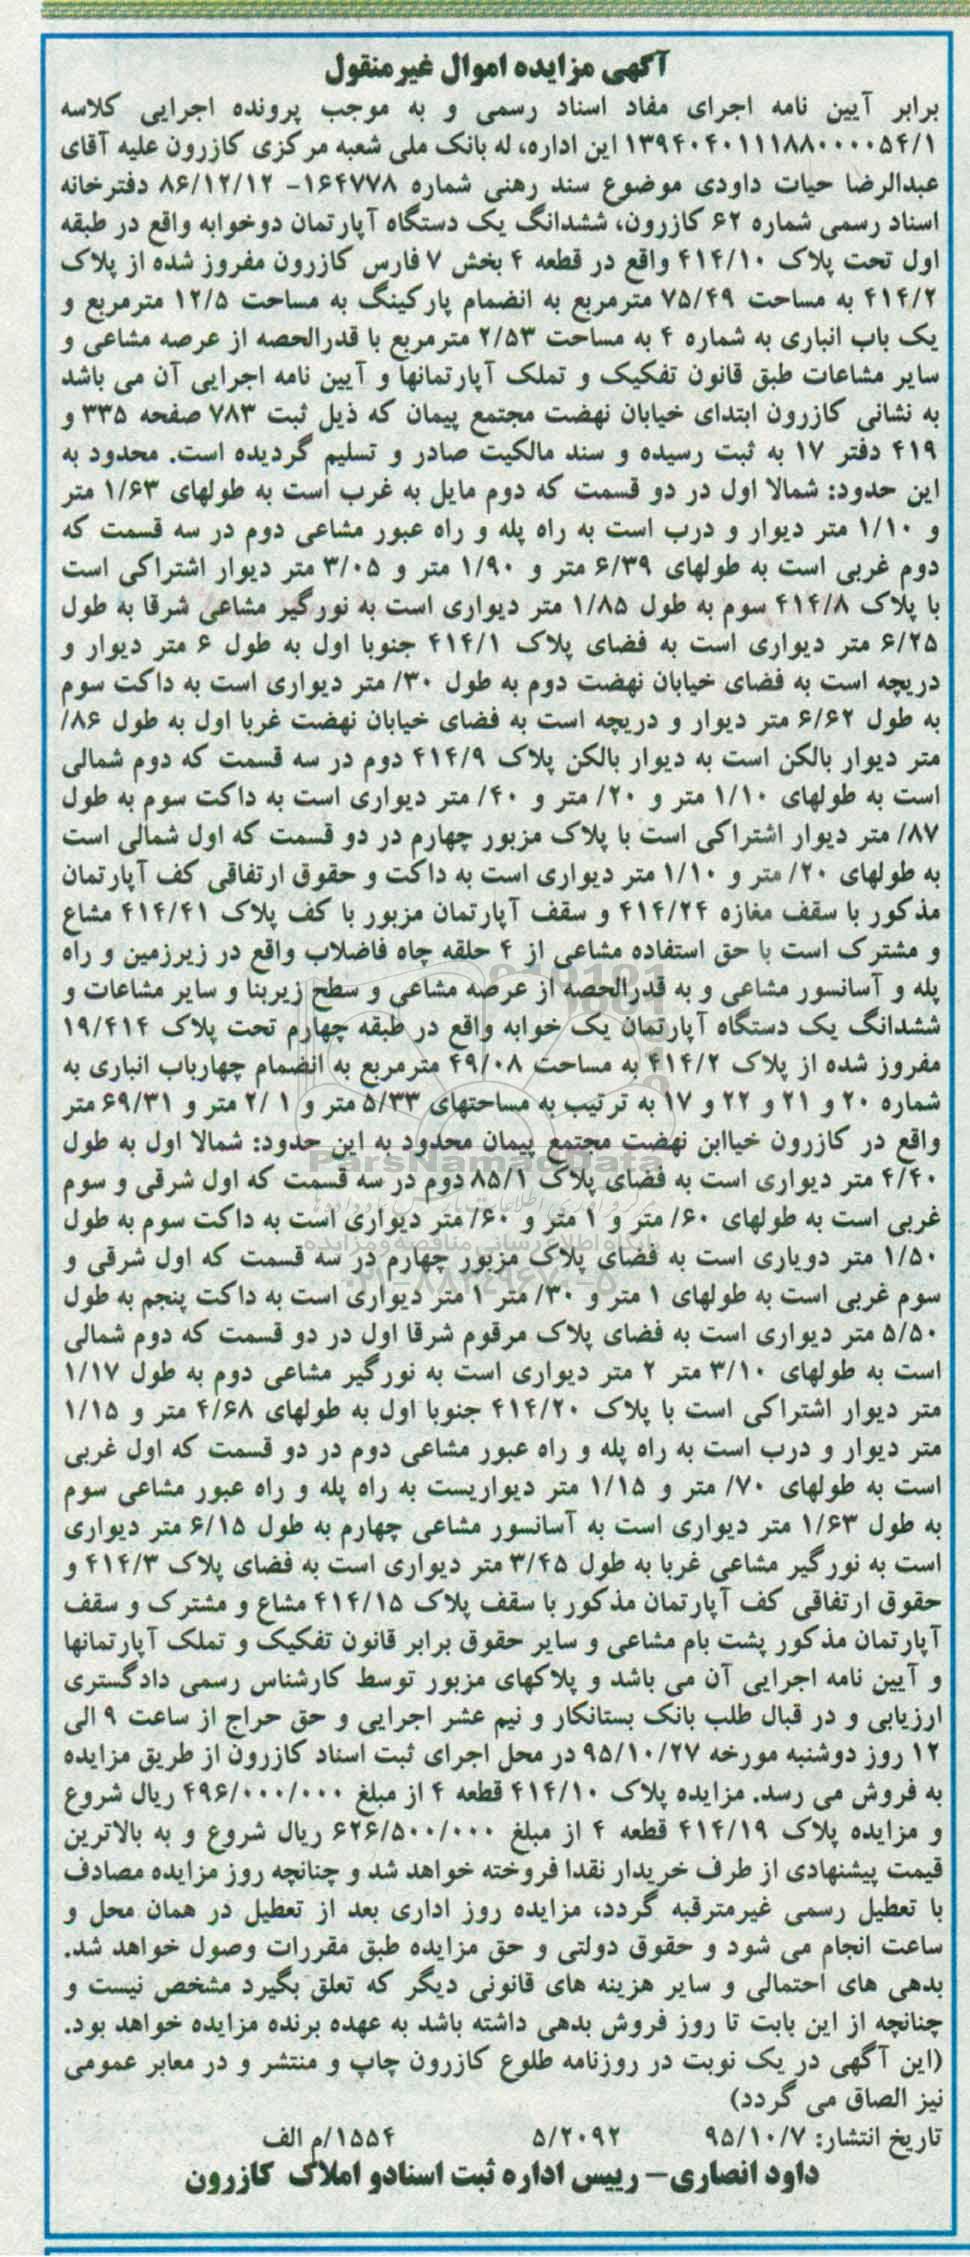 آگهی مزایده اموال غیرمنقول
برابر آیین نامه اجرای مفاد اسناد رسمی و به موجب پرونده اجرایی کلاسه
۱۳۹۴۰۴۰۱۱۱۸۸۰۰۰۰۵۴/۱ این اداره، له بانک ملی شعبه مرکزی کازرون علیه آقای
عبدالرضا حیات داودی موضوع سند رهنی شماره ۱۶۴۷۷۸- ۸۶/۱۲/۱۲ دفترخانه
اسناد رسمی شماره ۶۲ کازرون، ششدانگ یک دستگاه آپارتمان دوخوابه واقع در طبقه
اول تحت پلاک ۴۱۴/۱۰ واقع در قطعه ۴ بخش ۷ فارس کازرون مفروز شده از پلاک
۴۱۴/۲ به مساحت ۷۵/۴۹ مترمربع به انضمام پارکینگ به مساحت ۱۲/۵ مترمربع و
یک باب انباری به شماره ۴ به مساحت ۲/۵۳ مترمربع با قدرالحصه از عرصه مشاعی و
سایر مشاعات طبق قانون تفکیک و تملک آپارتمانها و آیین نامه اجرایی آن می باشد
به نشانی کازرون ابتدای خیابان نهضت مجتمع پیمان که ذیل ثبت ۷۸۳ صفحه ۳۳۵ و
۴۱۹ دفتر ۱۷ به ثبت رسیده و سند مالکیت صادر و تسلیم گردیده است. محدود به
این حدود: شمالا اول در دو قسمت که دوم مایل به غرب است به طولهای ۱/۶۳ متر
و ۱/۱۰ متر دیوار و درب است به راه پله و راه عبور مشاعی دوم در سه قسمت که
دوم غربی است به طولهای ۶/۳۹ متر و ۱/۹۰ متر و ۳/۰۵ متر دیوار اشتراکی است
با پلاک ۴۱۴/۸ سوم به طول ۱/۸۵ متر دیواری است به نورگیر مشاعی شرقا به طول
۶/۲۵ متر دیواری است به فضای پلاک ۴۱۴/۱ جنوبا اول به طول ۶ متر دیوار و
دریچه است به فضای خیابان نهضت دوم به طول ۳۰/ متر دیواری است به داکت سوم
به طول ۶/۶۲ متر دیوار و دریچه است به فضای خیابان نهضت غربا اول به طول ۸۶/
متر دیوار بالکن است به دیوار بالکن پلاک ۴۱۴/۹ دوم در سه قسمت که دوم شمالی
است به طولهای ۱/۱۰ متر و ۲۰/ متر و ۴۰/ متر دیواری است به داکت سوم به طول
۸۷/ متر دیوار اشتراکی است با پلاک مزبور چهارم در دو قسمت که اول شمالی است
به طولهای ۲۰/ متر و ۱/۱۰ متر دیواری است به داکت و حقوق ارتفاقی کف آپارتمان
مذکور با سقف مغازه ۴۱۴/۲۴ و سقف آپارتمان مزبور با کف پلاک ۴۱۴/۴۱ مشاع
و مشترک است با حق استفاده مشاعی از ۴ حلقه چاه فاضلاب واقع در زیرزمین و راه
پله و آسانسور مشاعی و به قدرالحصه از عرصه مشاعی و سطح زیربنا و سایر مشاعات و
ششدانگ یک دستگاه آپارتمان یک خوابه واقع در طبقه چهارم تحت پلاک ۱۹/۴۱۴
مفروز شده از پلاک ۴۱۴/۲ به مساحت ۴۹/۰۸ مترمربع به انضمام چهارباب انباری به
شماره ۲۰ و ۲۱ و ۲۲ و ۱۷ به ترتیب به مساحتهای ۵/۳۳ متر و ۱ /۲ متر و ۶۹/۳۱ متر
واقع در کازرون خیاابن نهضت مجتمع پیمان محدود به این حدود: شمالا اول به طول
۴/۴۰ متر دیواری است به فضای پلاک ۸۵/۱ دوم در سه قسمت که اول شرقی و سوم
غربی است به طولهای ۶۰/ متر و ۱ متر و ۶۰/ متر دیواری است به داکت سوم به طول
۱/۵۰ متر دویاری است به فضای پلاک مزبور چهارم در سه قسمت که اول شرقی و
سوم غربی است به طولهای ۱ متر و ۳۰/ متر ۱ متر دیواری است به داکت پنجم به طول
۵/۵۰ متر دیواری است به فضای پلاک مرقوم شرقا اول در دو قسمت که دوم شمالی
است به طولهای ۳/۱۰ متر ۲ متر دیواری است به نورگیر مشاعی دوم به طول ۱/۱۷
متر دیوار اشتراکی است با پلاک ۴۱۴/۲۰ جنوبا اول به طولهای ۴/۶۸ متر و ۱/۱۵
متر دیوار و درب است به راه پله و راه عبور مشاعی دوم در دو قسمت که اول غربی
است به طولهای ۷۰/ متر و ۱/۱۵ متر دیواریست به راه پله و راه عبور مشاعی سوم
به طول ۱/۶۳ متر دیواری است به آسانسور مشاعی چهارم به طول ۶/۱۵ متر دیواری
است به نورگیر مشاعی غربا به طول ۳/۴۵ متر دیواری است به فضای پلاک ۴۱۴/۳ و
حقوق ارتفاقی کف آپارتمان مذکور با سقف پلاک ۴۱۴/۱۵ مشاع و مشترک و سقف
آپارتمان مذکور پشت بام مشاعی و سایر حقوق برابر قانون تفکیک و تملک آپارتمانها
و آیین نامه اجرایی آن می باشد و پلاکهای مزبور توسط کارشناس رسمی دادگستری
ارزیابی و در قبال طلب بانک بستانکار و نیم عشر اجرایی و حق حراج از ساعت ۹ الی
۱۲ روز دوشنبه مورخه ۹۵/۱۰/۲۷ در محل اجرای ثبت اسناد کازرون از طریق مزایده
به فروش می رسد. مزایده پلاک ۴۱۴/۱۰ قطعه ۴ از مبلغ ۴۹۶/۰۰۰/۰۰۰ ریال شروع
و مزایده پلاک ۴۱۴/۱۹ قطعه ۴ از مبلغ ۶۲۶/۵۰۰/۰۰۰ ریال شروع و به بالاترین
قیمت پیشنهادی از طرف خریدار نقدا فروخته خواهد شد و چنانچه روز مزایده مصادف
با تعطیل رسمی غیرمترقبه گردد، مزایده روز اداری بعد از تعطیل در همان محل و
ساعت انجام می شود و حقوق دولتی و حق مزایده طبق مقررات وصول خواهد شد.
بدهی های احتمالی و سایر هزینه های قانونی دیگر که تعلق بگیرد مشخص نیست و
چنانچه از این بابت تا روز فروش بدهی داشته باشد به عهده برنده مزایده خواهد بود.
(این آگهی در یک نوبت در روزنامه طلوع کازرون چاپ و منتشر و در معابر عمومی
نیز الصاق می گردد)
تاریخ انتشار: ۹۵/۱۰/۷ ۵/۲۰۹۲ ۱۵۵۴/م الف
داود انصاری- رییس اداره ثبت اسنادو املاک کازرون
ParsNamadData
پایگاه اطلاع رسانی مناقصه و مزایده